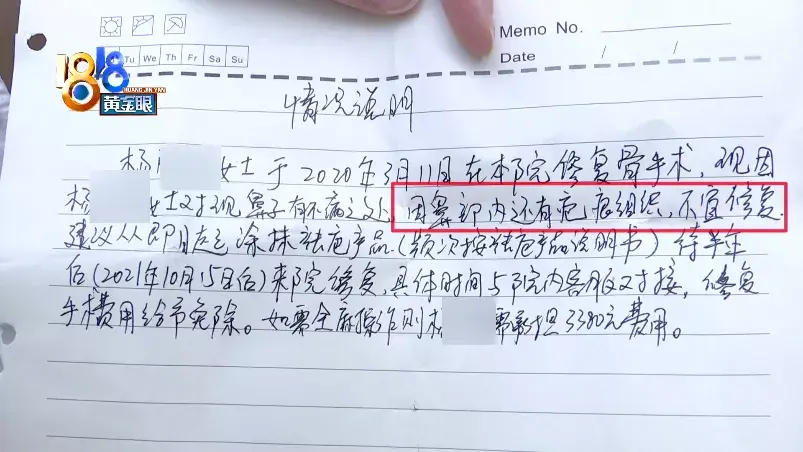 Memo No.
Date / /
Tu We Th Fr Sa Su
1818
HUANG JIN YAN
黄金眼
情况说明
杨 女士于2020年3月11日在本院修复骨手术,现因
杨 女士对现鼻子有不满之处,因鼻部内还有疤痕组织,不宜修复.
建议从即日起涂抹祛疤产品(频次按祛疤产品说明书)待半年
后(2021年10月15日后)来院修复,具体时间与院内客服对接,修复
手术费用给予免除。如需全麻操作则杨 需承担3380元费用。